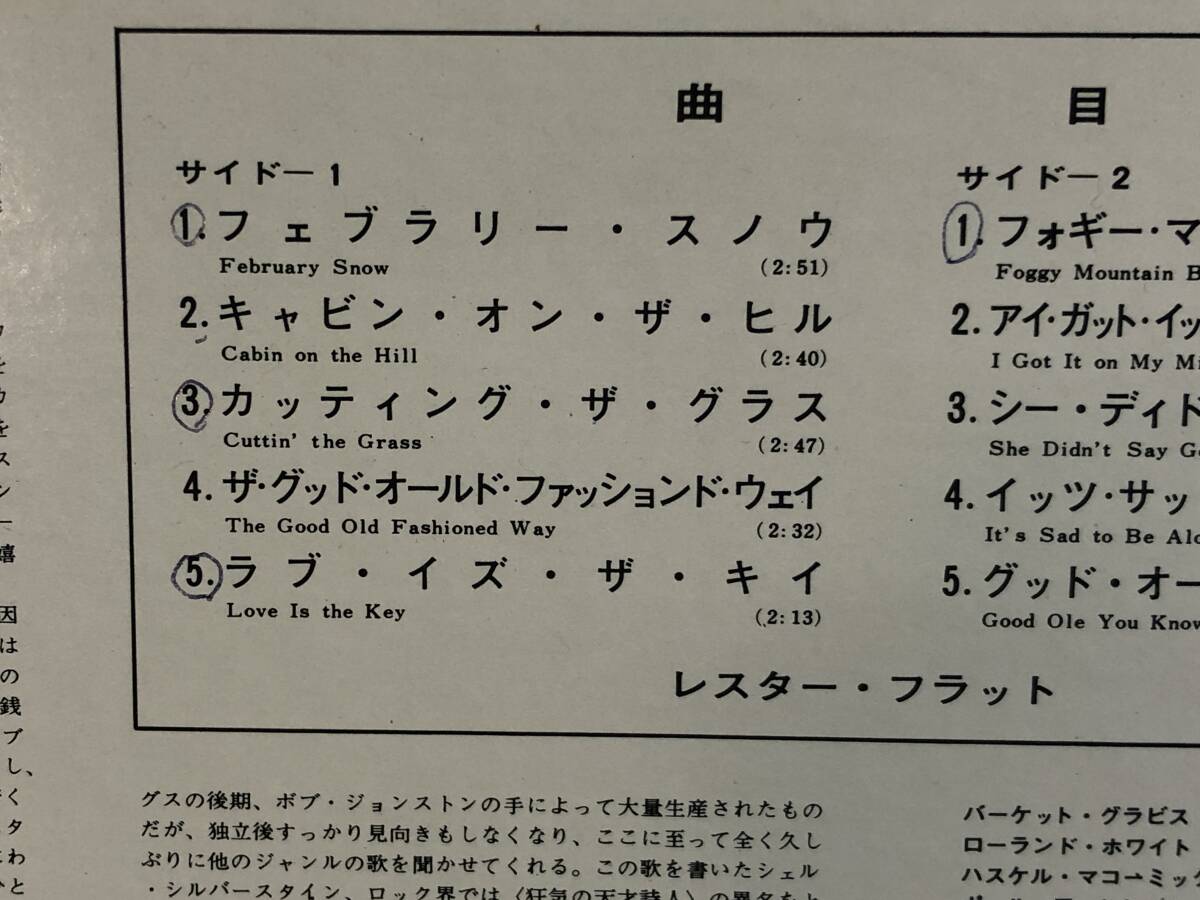 曲目
サイド—1
1. フェブラリー・スノウ
February Snow (2:51)
2. キャビン・オン・ザ・ヒル
Cabin on the Hill (2:40)
3. カッティング・ザ・グラス
Cuttin' the Grass (2:47)
4. ザ・グッド・オールド・ファッションド・ウェイ
The Good Old Fashioned Way (2:32)
5. ラブ・イズ・ザ・キイ
Love Is the Key (2:13)
サイド—2
1. フォギー・マ
Foggy Mountain B
2. アイ・ガット・イッ
I Got It on My Mi
3. シー・ディド
She Didn't Say Go
4. イッツ・サッ
It's Sad to Be Alo
5. グッド・オー
Good Ole You Know
レスター・フラット
嬉
因
は
の
銭
ブ
し、
く
タ
わ
と
グスの後期、ボブ・ジョンストンの手によって大量生産されたもの
だが、独立後すっかり見向きもしなくなり、ここに至って全く久し
ぶりに他のジャンルの歌を聞かせてくれる。この歌を書いたシェル
・シルバースタイン、ロック界では〈狂気の天才詩人〉の異名をと
バーケット・グラビス
ローランド・ホワイト
ハスケル・マコーミック